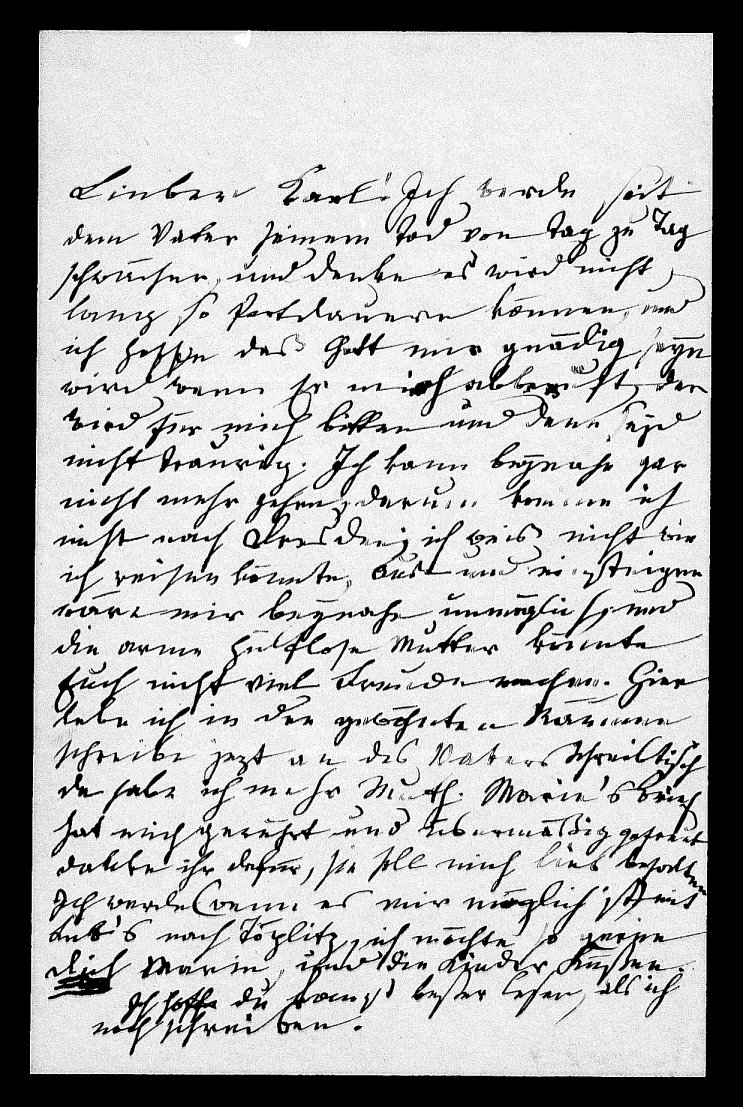 Lieber Karl! Ich werde seit
dem Vater seinem Tod von Tag zu Tag
schwächer, und denke es wird nicht
lang so fortdauern können, und
ich hoffe daß Gott mir gnädig seyn
wird wenn Er mich abberuft, der
wird für mich bitten und denn seyd
nicht traurig. Ich kann beynahe gar
nicht mehr gehen, darum komme ich
nicht nach Dresden, ich weis nicht wie
ich reisen könnte, Aus und einsteigen
wäre mir beynahe unmöglich, und
die arme hülflose Mutter könnte
Euch nicht viel Freude machen. Hier
lebe ich in den gewohnten Räumen
schreibe jezt an des Vaters Schreibtisch
da habe ich mehr Muth. Marie's Brief
hat mich gerührt und übermäßig gefreut
danke ihr dafür, sie soll mich lieb behalten
Ich werde (wenn es mir möglich ist) mit
nach Töplitz, ich möchte so gerne
Dich Marie, und die Kinder Küßen.
Ich hoffe du kannst beßer lesen, als ich
noch schreiben.